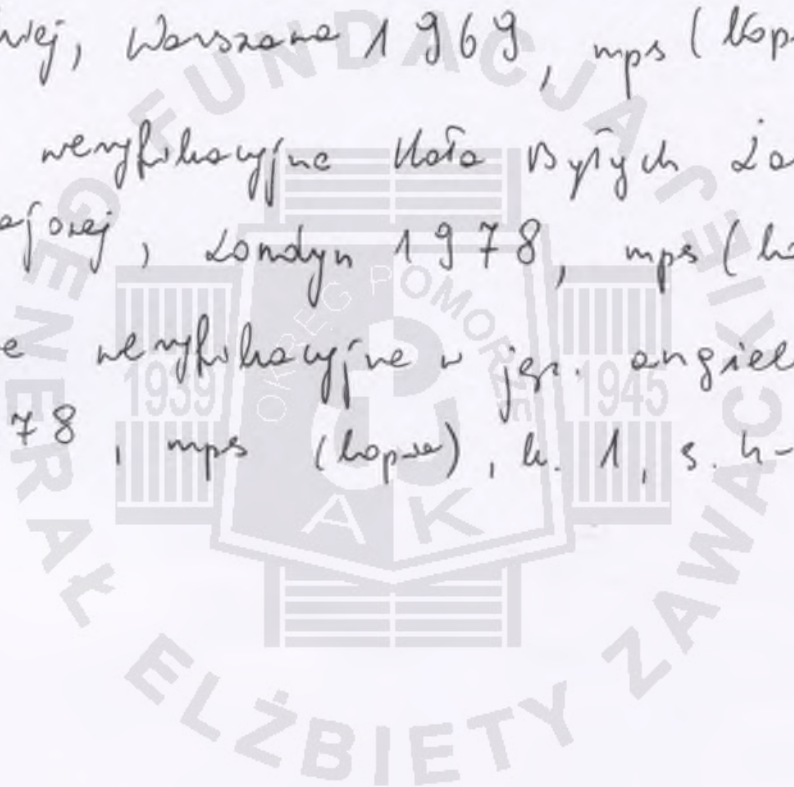 Warszawa 1969, mps (kop
weryfikacyjne Koła Byłych Żo
ajowej, Londyn 1978, mps (ko
e weryfikacyjne w jęz. angiel
78, mps (kopia), k. 1, s. 4-
FUNDACJA
GENERAŁ ELŻBIETY ZAWACKIEJ
OKRĘG POMORZE
1939
1945
AK